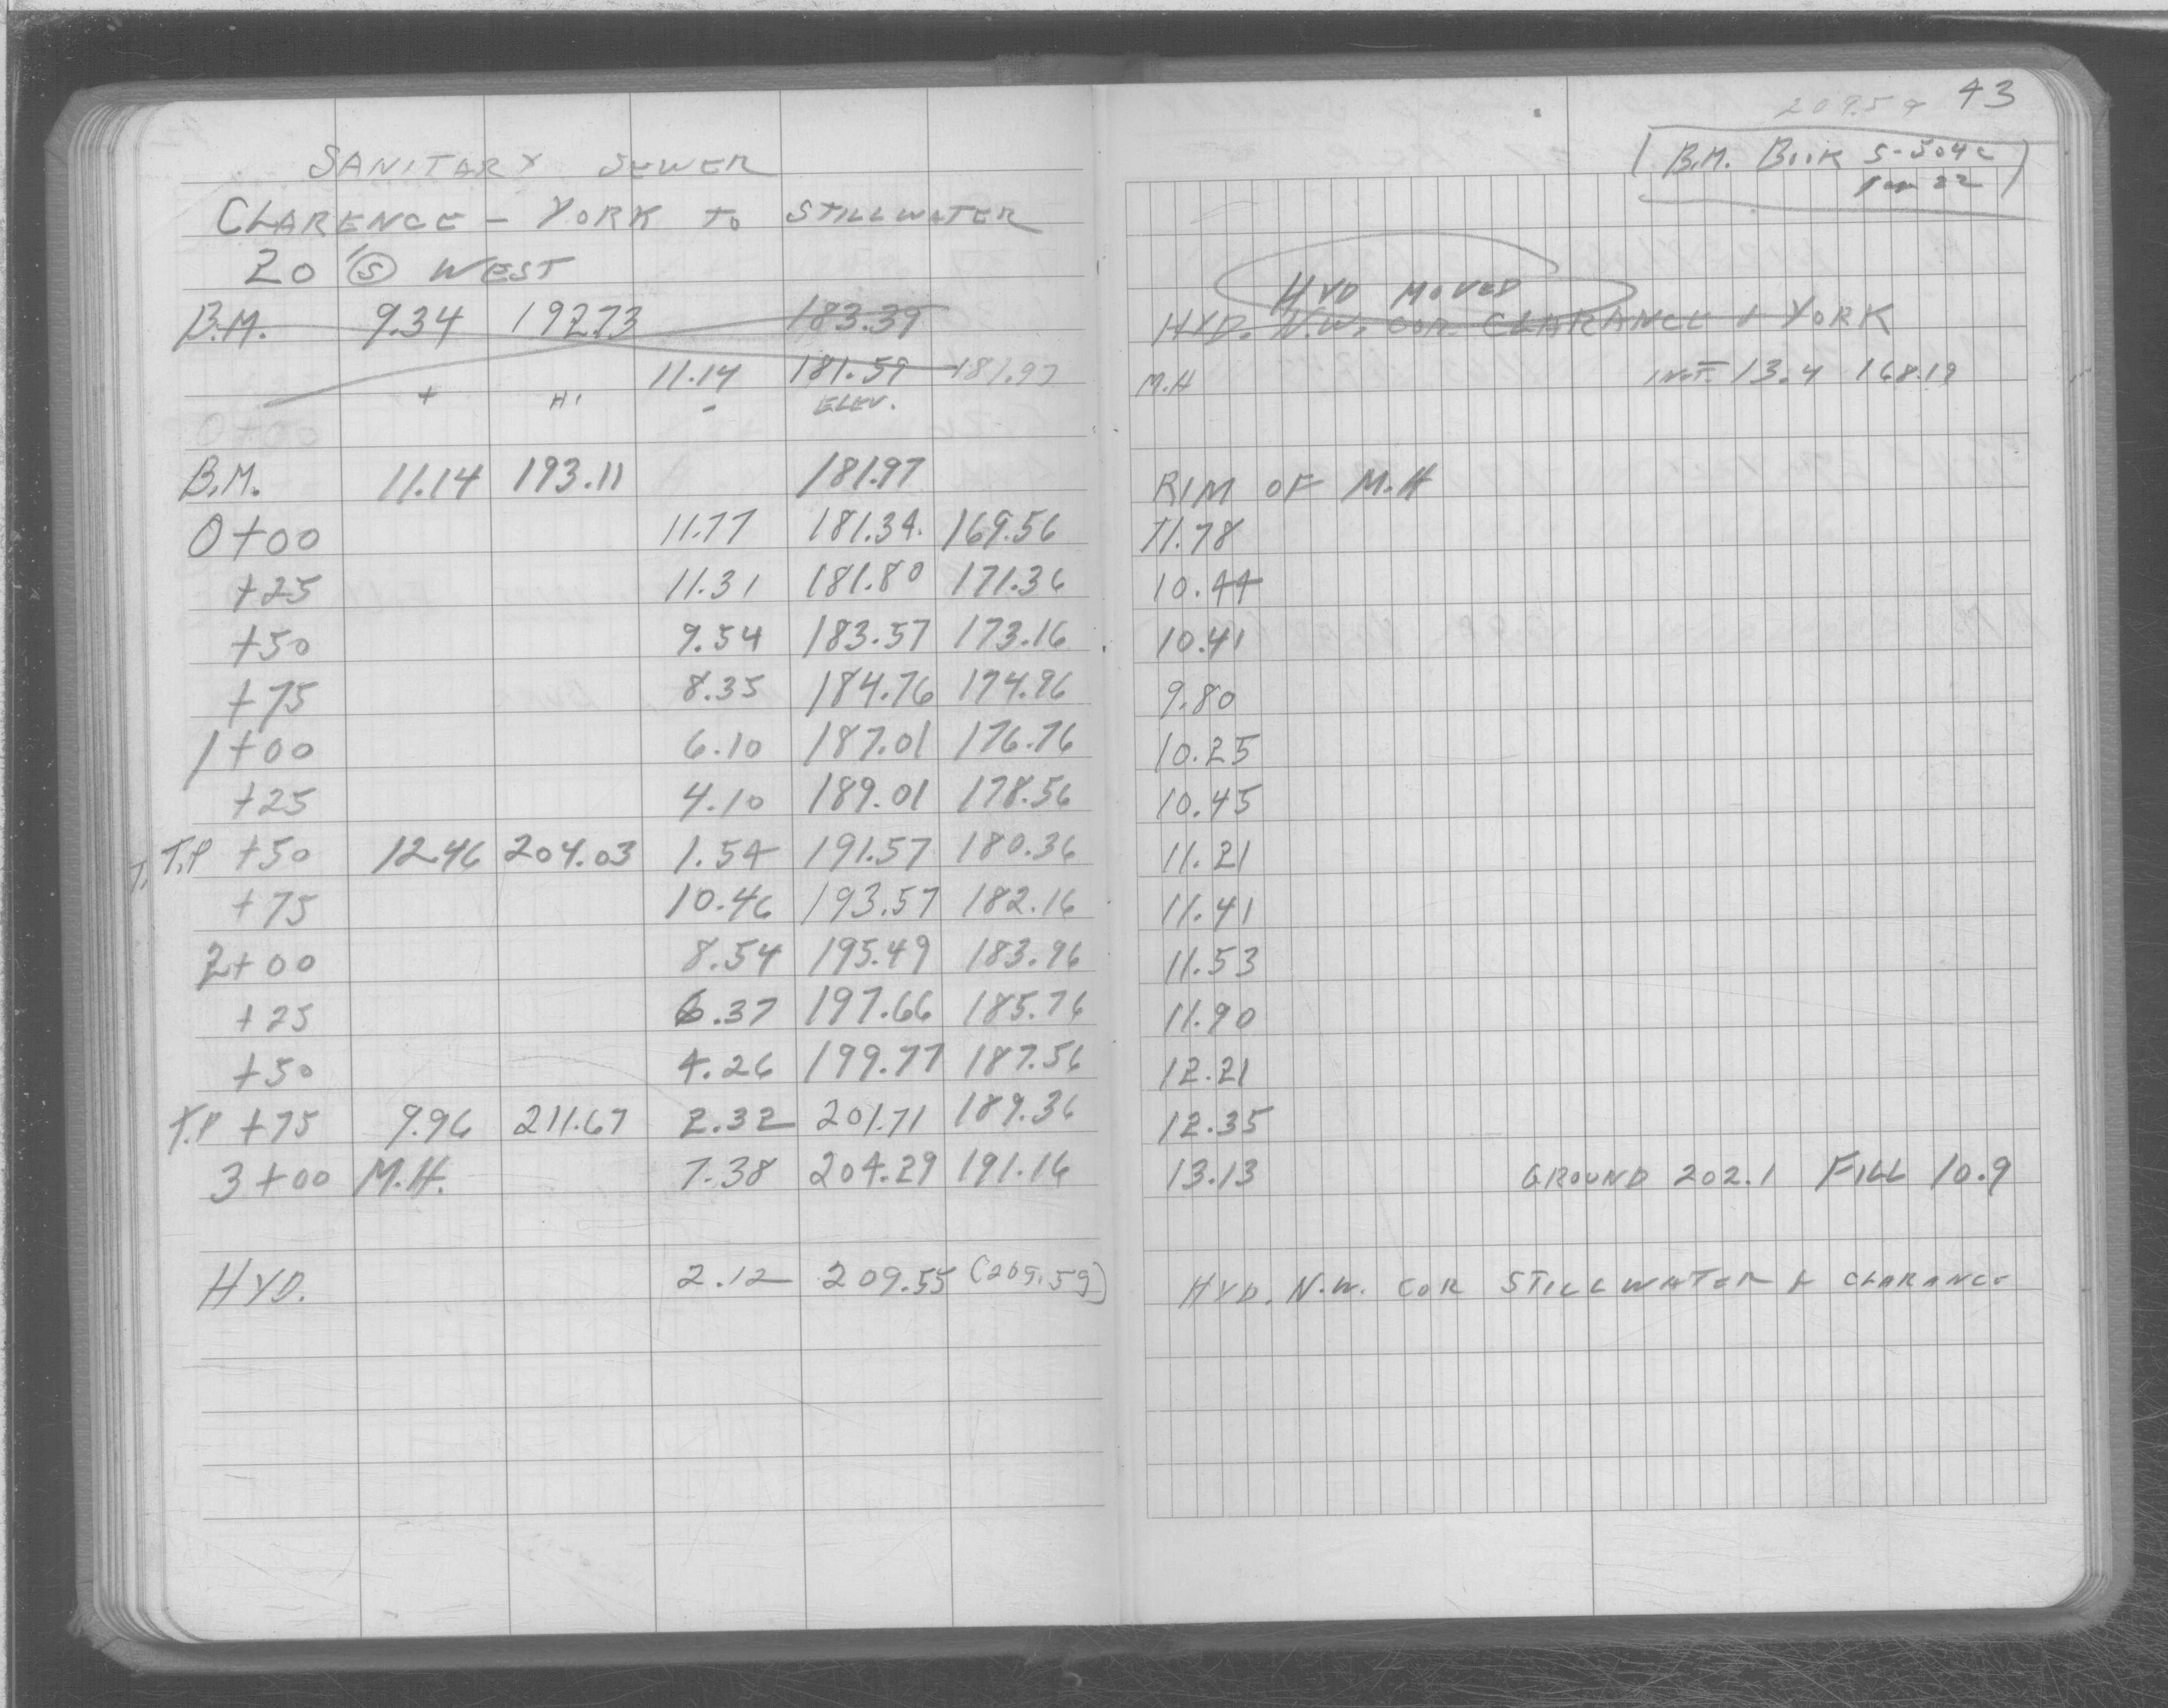 SANITARY SEWER
CLARENCE - YORK TO STILLWATER
20' Ⓢ WEST
B.M. 9.34 192.73 183.39
11.14 181.59 181.97
+ HI - ELEV.
0+00
B.M. 11.14 193.11 181.97
0+00 11.77 181.34 169.56
+25 11.31 181.80 171.36
+50 9.54 183.57 173.16
+75 8.35 184.76 174.96
1+00 6.10 187.01 176.76
+25 4.10 189.01 178.56
T. T.P +50 12.46 204.03 1.54 191.57 180.36
+75 10.46 193.57 182.16
2+00 8.54 195.49 183.96
+25 6.37 197.66 185.76
+50 4.26 199.77 187.56
T.P +75 9.96 211.67 2.32 201.71 189.36
3+00 M.H. 7.38 204.29 191.16
HYD. 2.12 209.55 (209.59)
209.59 43
B.M. BOOK S-504C
22
HYD MOVED
HYD. N.W. COR. CLARANCE & YORK
M.H INT. 13.4 168.19
RIM OF M.H
11.78
10.44
10.41
9.80
10.25
10.45
11.21
11.41
11.53
11.90
12.21
12.35
13.13 GROUND 202.1 FILL 10.9
HYD. N.W. COR STILLWATER & CLARANCE